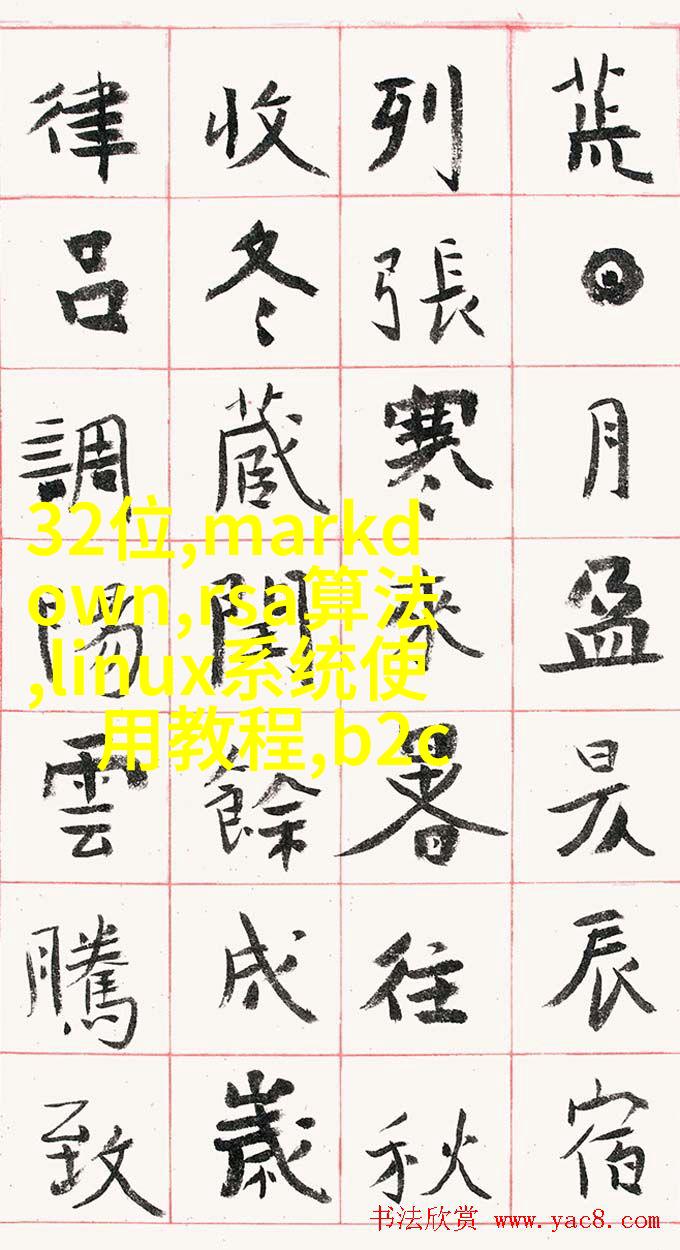 荒日月盈昃辰宿
列張寒來暑往秋
收冬藏閏餘成歲
律呂調陽雲騰致
32位,markd
own,rsa算法
,linux系统使
用教程,b2c
书法欣赏 www.yac8.com